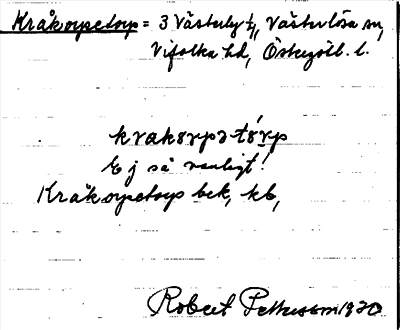 Kråkorpetorp = 3 Västerby t/, Västerlösa sn,
Vifolka hd, Östergötl. l.
krakorpɔ-tórp
Ej så vanligt!
Kråkorpetorp bek, kb,
Robert Pettersson 1930